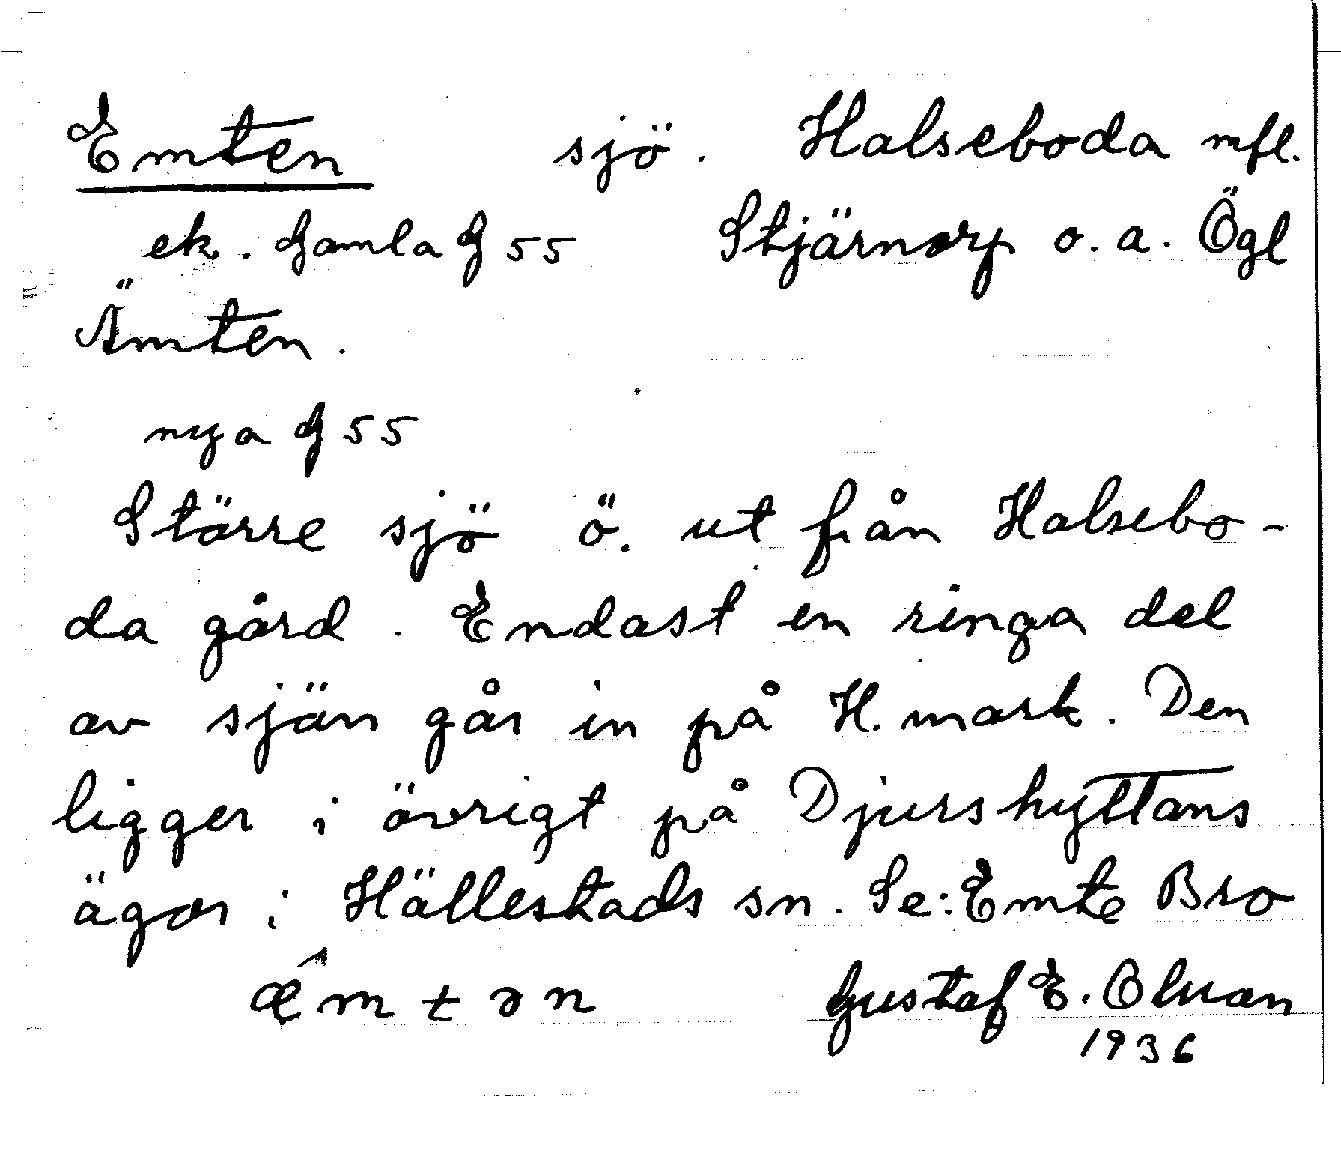 Emten sjö. Halseboda mfl.
ek. Gamla G 55 Stjärnorp o. a. Ögl
Ämten.
nya G 55
Större sjö ö. ut från Halsebo-
da gård. Endast en ringa del
av sjön går in på H. mark. Den
ligger i övrigt på Djurshyttans
ägor i Hällestads sn. Se: Emte Bro
æ̂mtən Gustaf E. Olsson
1936